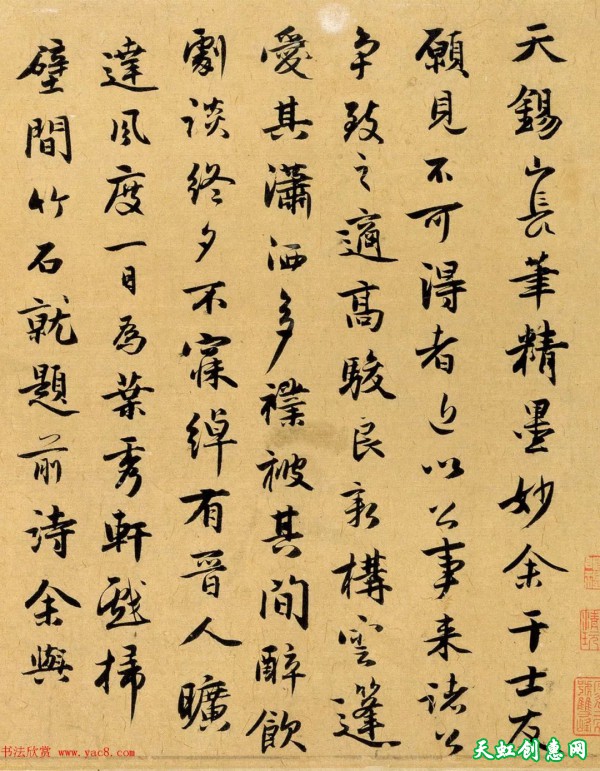 天錫山長筆精墨妙余干士友
願見不可得者近以公事来諸公
争致之適高駿良新構雲篷
愛其瀟洒多襆被其間醉飲
劇談終夕不寐綽有晉人曠
達風度一日為葉秀軒戲掃
壁間竹石就題前詩余與
书法欣赏 www.yac8.com
天虹创惠网